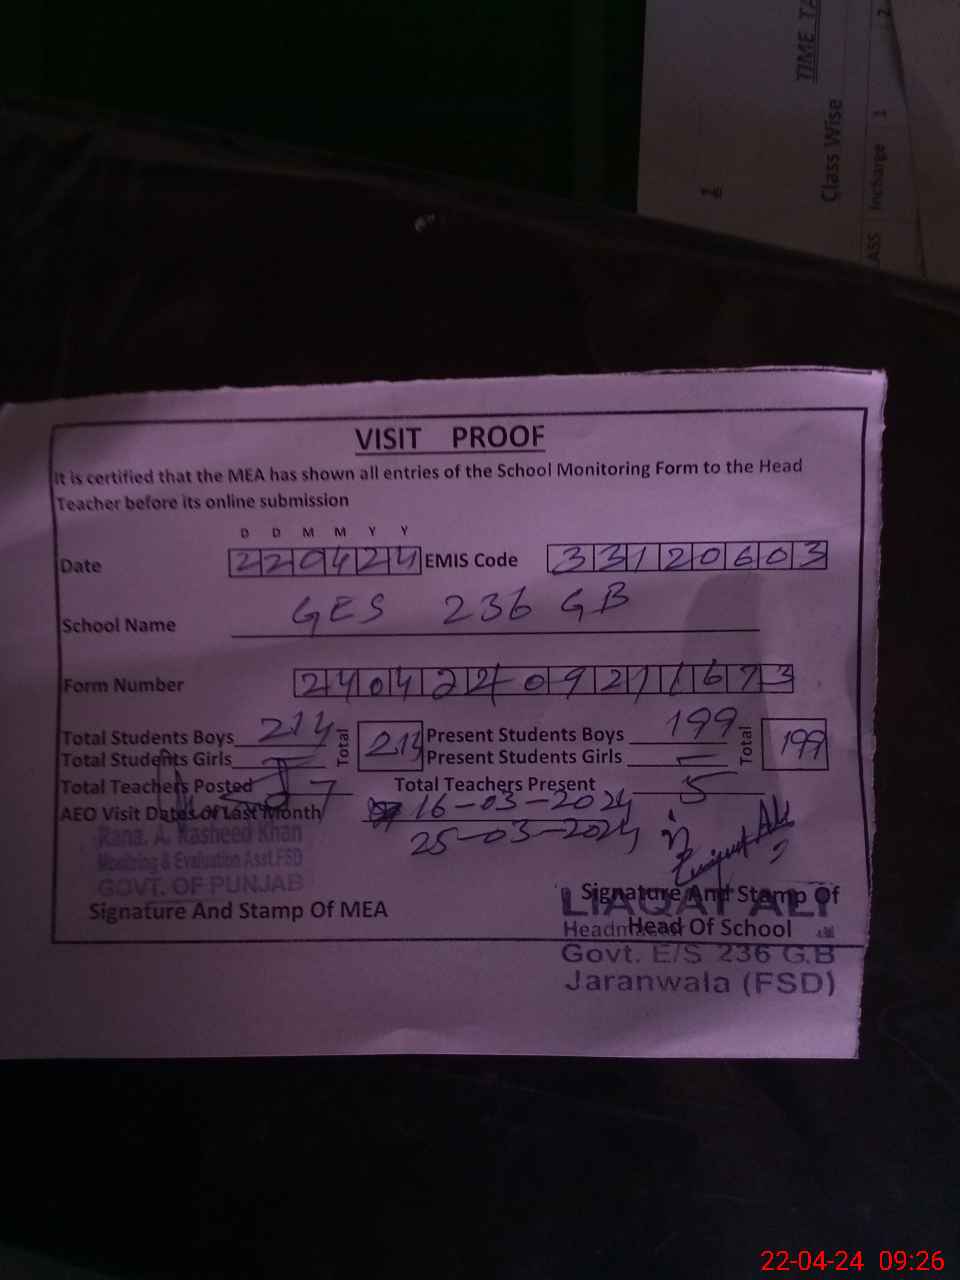 TIME TA
Class Wise
ASS Incharge 1 2
1
VISIT PROOF
It is certified that the MEA has shown all entries of the School Monitoring Form to the Head
Teacher before its online submission
D D M M Y Y
Date 220424 EMIS Code 33120603
School Name GES 236 GB
Form Number 2404224092
Total Students Boys 214 Total 214 Present Students Boys 199 Total 199
Total Students Girls — Present Students Girls —
Total Teachers Posted 7 Total Teachers Present 5
AEO Visit Dates Of Last Month 16-03-2024
25-03-2024
Rana. A. Rasheed Khan
Monitoring & Evaluation Asst.FSD
GOVT. OF PUNJAB
Signature And Stamp Of MEA
Signature And Stamp Of
Head Of School
LIAQAT ALI
Headm
Govt. E/S 236 G.B
Jaranwala (FSD)
22-04-24 09:26